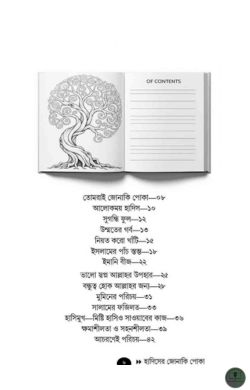 OF CONTENTS
তোমরাই জোনাকি পোকা—০৮
আলোকময় হাদিস—১০
সুগন্ধি ফুল—১২
উম্মতের গর্ব—১৩
নিয়ত করো খাঁটি—১৫
ইসলামের পাঁচ স্তম্ভ—১৮
ইমানি বীজ—২২
ভালো স্বপ্ন আল্লাহর উপহার—২৫
বন্ধুত্ব হোক আল্লাহর জন্য—২৮
মুমিনের পরিচয়—৩১
সালামের ফজিলত—৩৩
হাসিমুখ—মিষ্টি হাসিও সাওয়াবের কাজ—৩৬
ক্ষমাশীলতা ও সহনশীলতা—৩৯
আচরণেই পরিচয়—৪২
হাদিসের জোনাকি পোকা